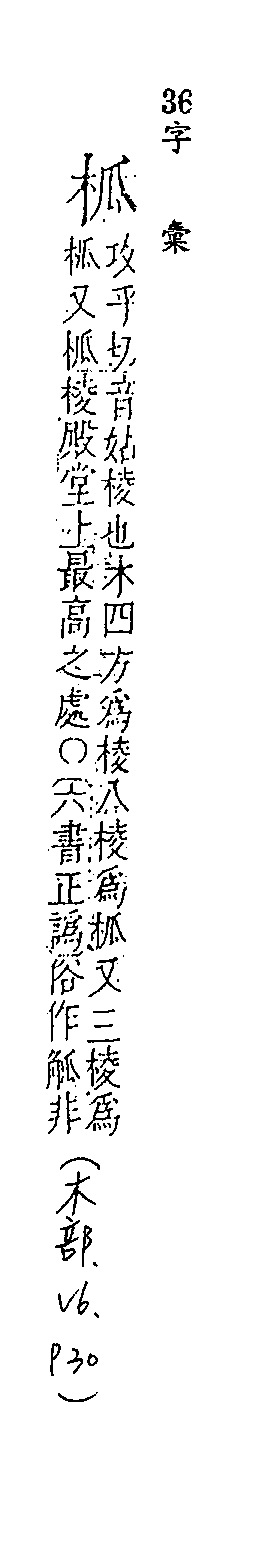 36字　彙
柧
攻乎切音姑棱也木四方為棱八棱為柧又三棱為
柧又柧棱殿堂上最高之處〇六書正譌俗作觚非
(木部、V6、P30)